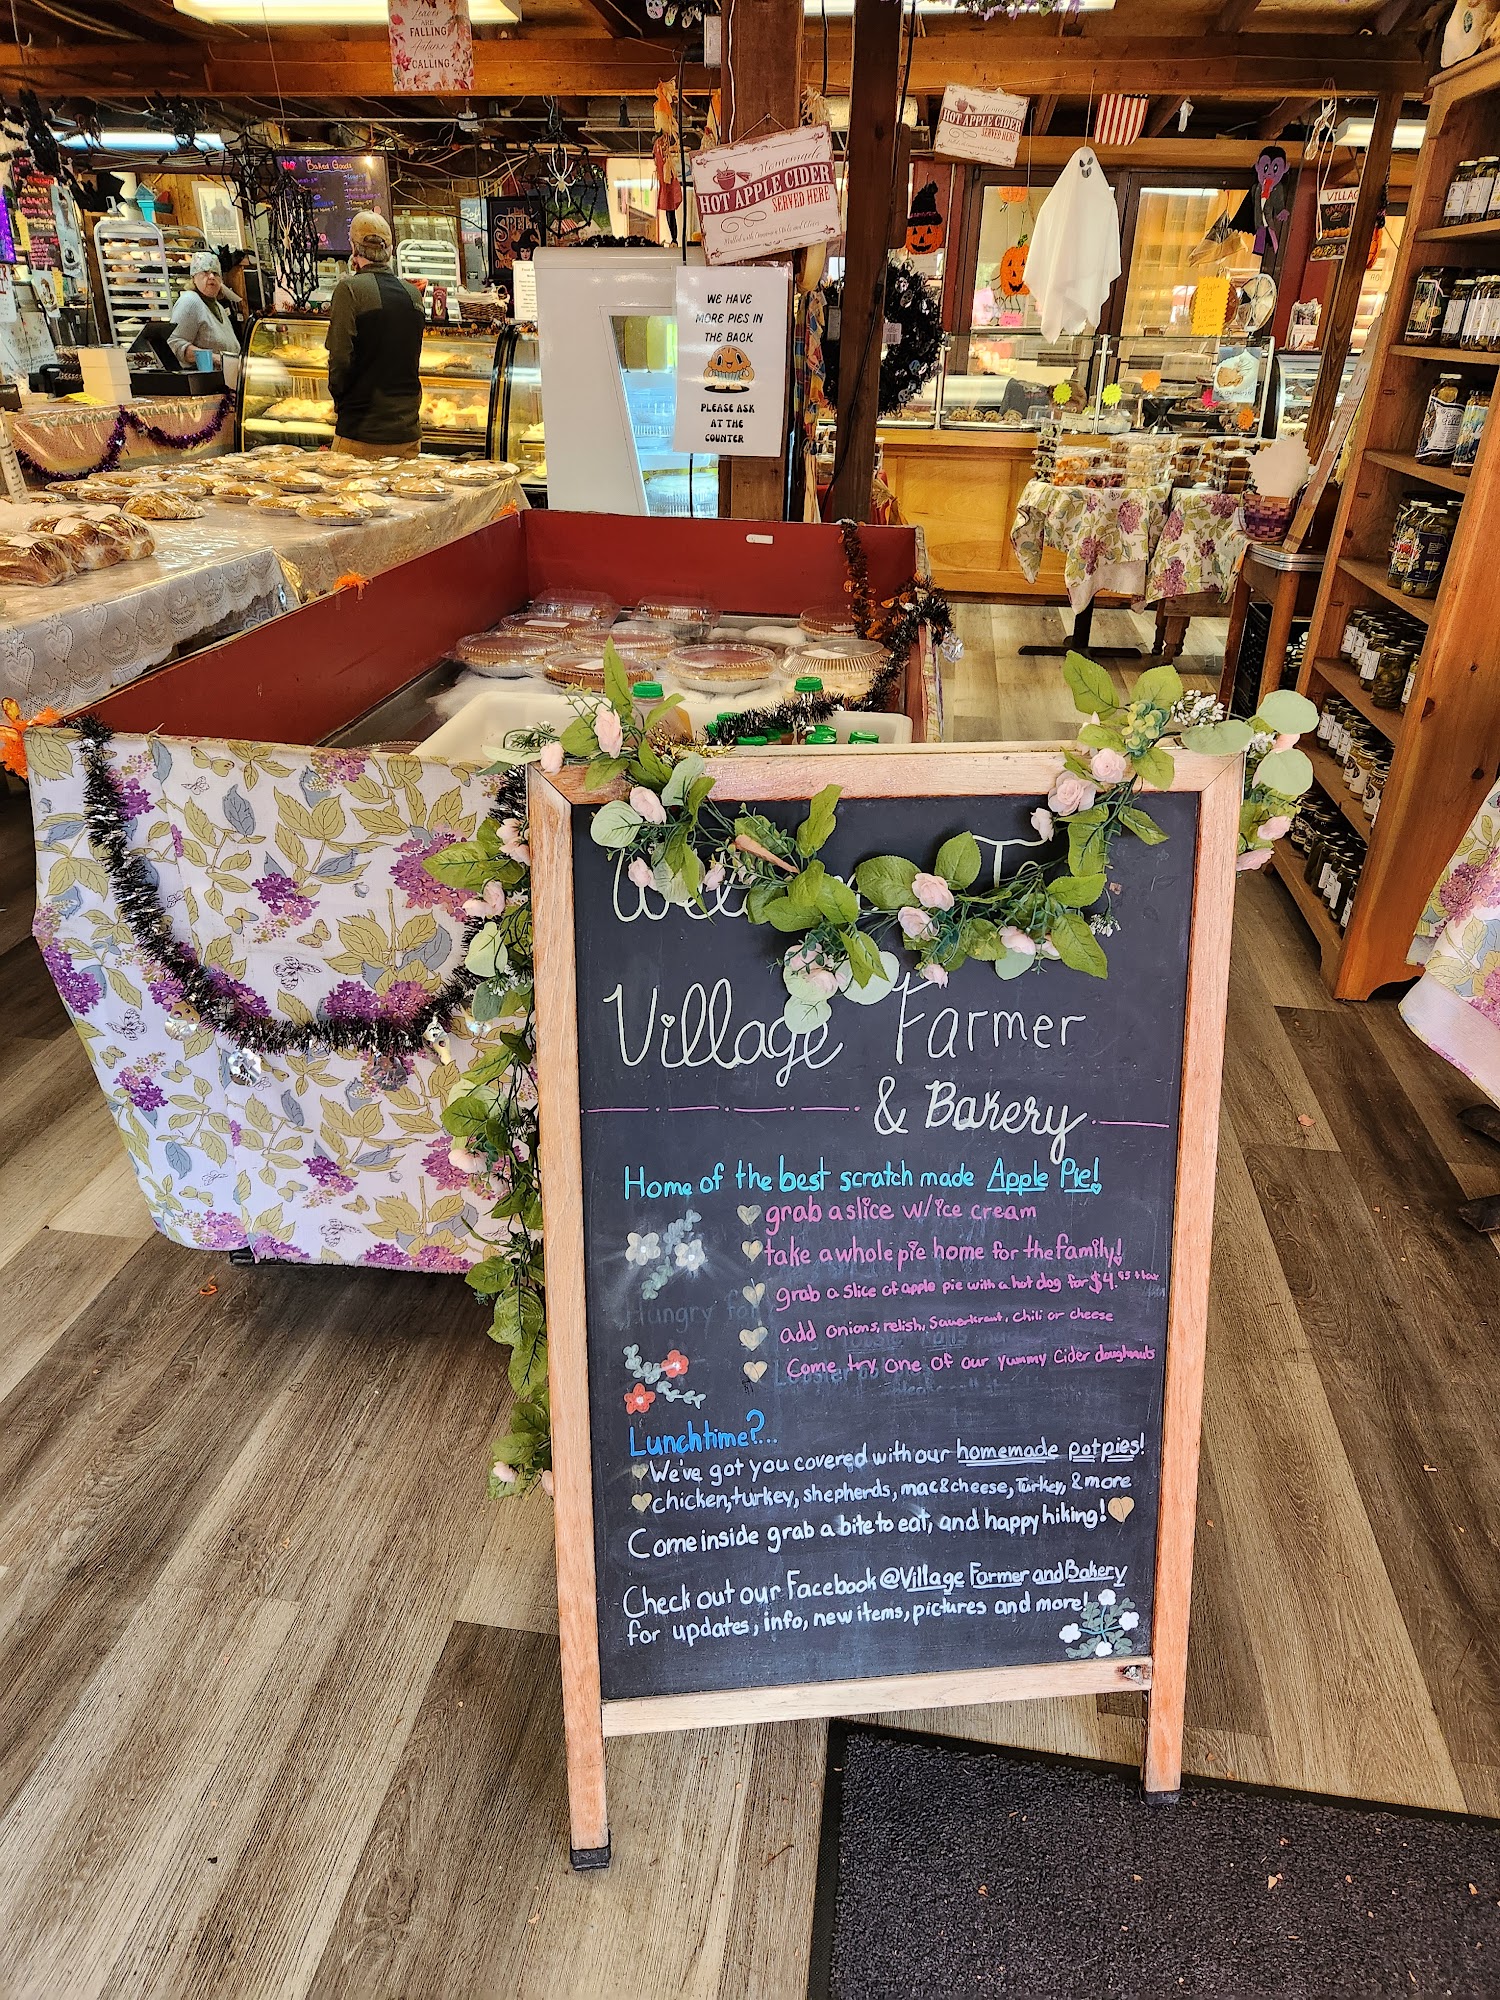 Leaves
ARE
FALLING
Autumn
IS
CALLING
Baked Goods
Homemade
HOT APPLE CIDER
SERVED HERE
Homemade
HOT APPLE CIDER
SERVED HERE
WE HAVE
MORE PIES IN
THE BACK
PLEASE ASK
AT THE
COUNTER
VILLAGE
Village Farmer
& Bakery
Home of the best scratch made Apple Pie!
grab a slice w/ice cream
take a whole pie home for the family!
grab a slice of apple pie with a hot dog for $4.95 + tax
add onions, relish, sauerkraut, chili or cheese
Come try one of our yummy Cider doughnuts
Lunchtime?...
We've got you covered with our homemade potpies!
chicken, turkey, shepherds, mac&cheese, Turkey, & more
Come inside grab a bite to eat, and happy hiking!
Check out our Facebook @Village Farmer and Bakery
for updates, info, new items, pictures and more!